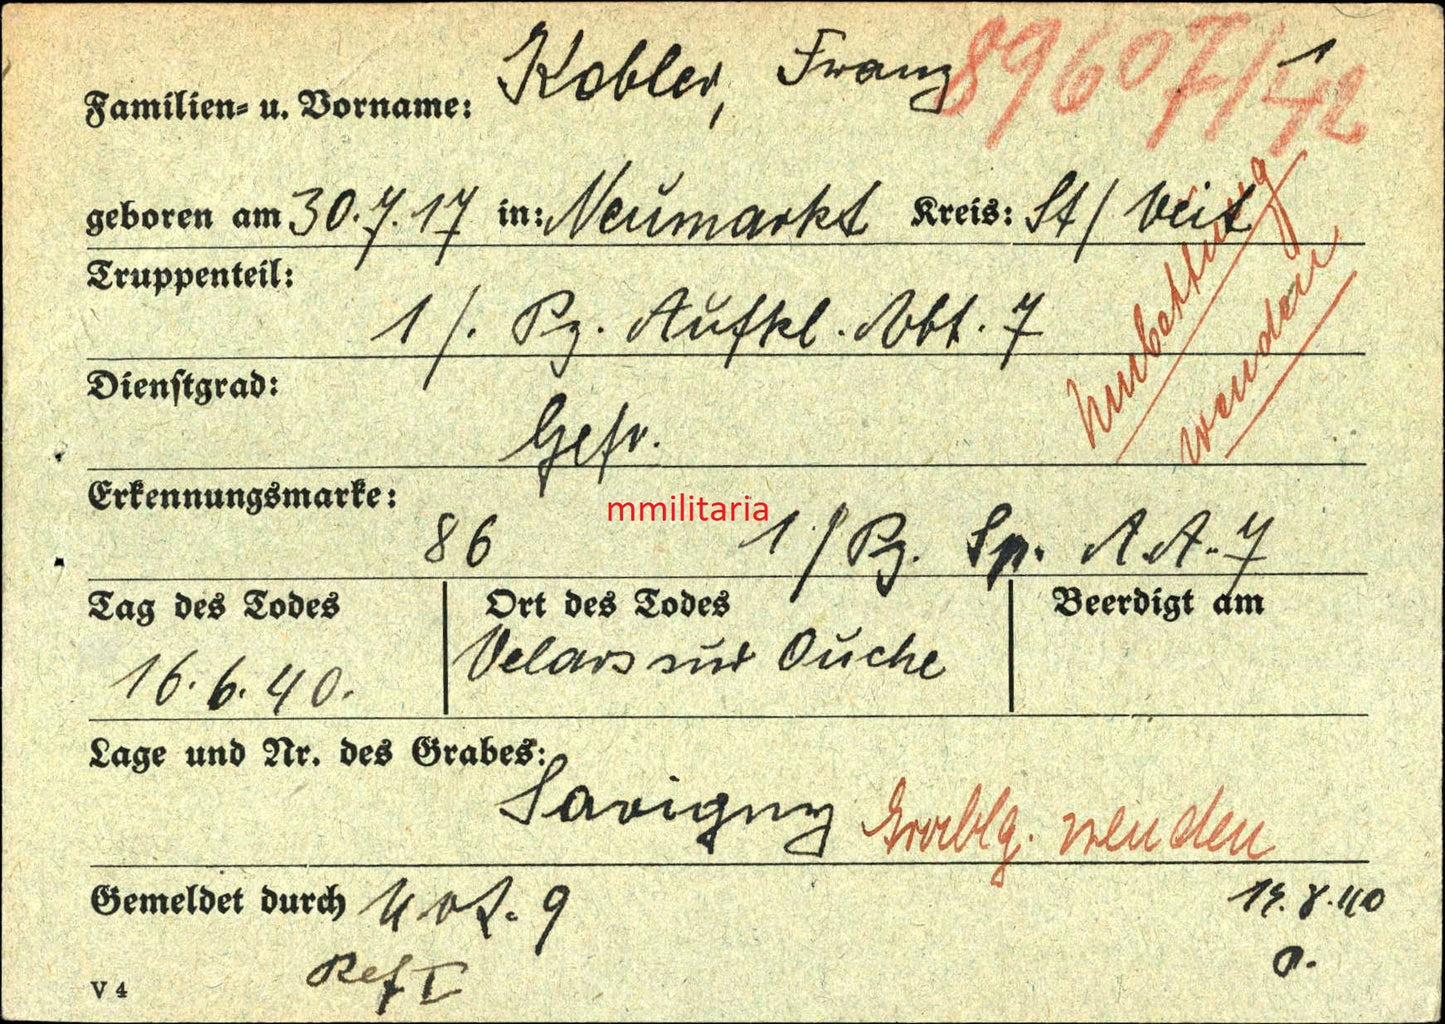 Familien- u. Vorname: Kobler, Franz
89607/42
geboren am 30.7.17 in: Neumarkt Kreis: St/ Veit
Umbettung
wenden
Truppenteil:
1/. Pz. Aufkl. Abt. 7
Dienstgrad:
Gefr.
Erkennungsmarke:
mmilitaria
86 1/Pz. Sp. A.A. 7
Tag des Todes Ort des Todes Beerdigt am
16.6.40. Velars sur Ouche
Lage und Nr. des Grabes:
Savigny Grablg. wenden
Gemeldet durch 9
Ref I
V 4